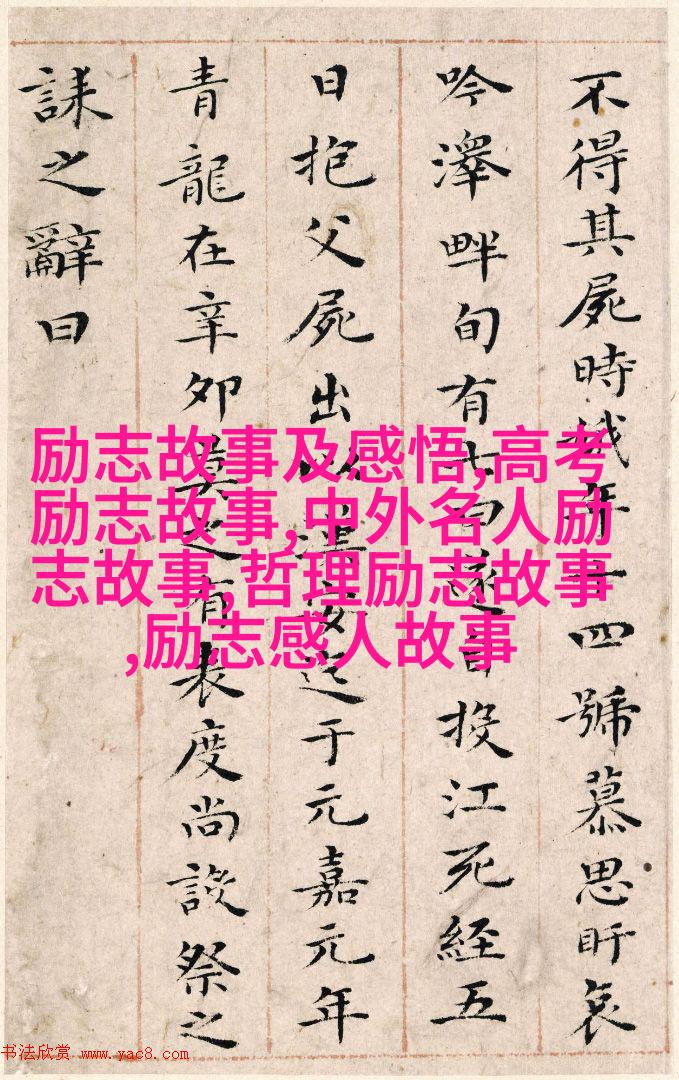 不得其屍時娥年十四號慕思盱哀
吟澤畔旬有七日遂自投江死經五
日抱父屍出以漢安迄于元嘉元年
青龍在辛卯莫之有表度尚設祭之
誄之辭曰
励志故事及感悟,高考
励志故事,中外名人励
志故事,哲理励志故事
,励志感人故事
书法欣赏 www.yac8.com